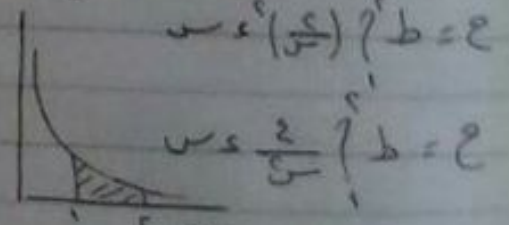 ح = ط ∫₁² (٢/س)² ءس
ح = ط ∫₁² ٤/س² ءس
١ ٢